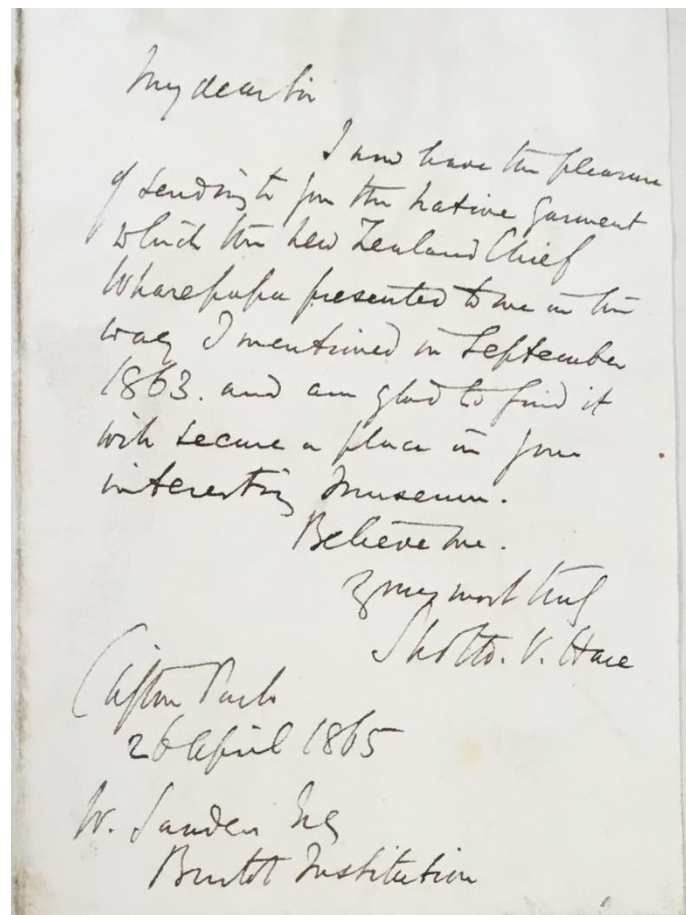 My dear Sir
I now have the pleasure
of sending to you the native garment
which the New Zealand Chief
Wharepapa presented to me in the
way I mentioned in September
1863. and am glad to find it
will secure a place in your
interesting Museum.
Believe me.
Yours most truly
Sholto. V. Hare
Clifton Park
26 April 1865
W. Sanders Esq
Bristol Institution